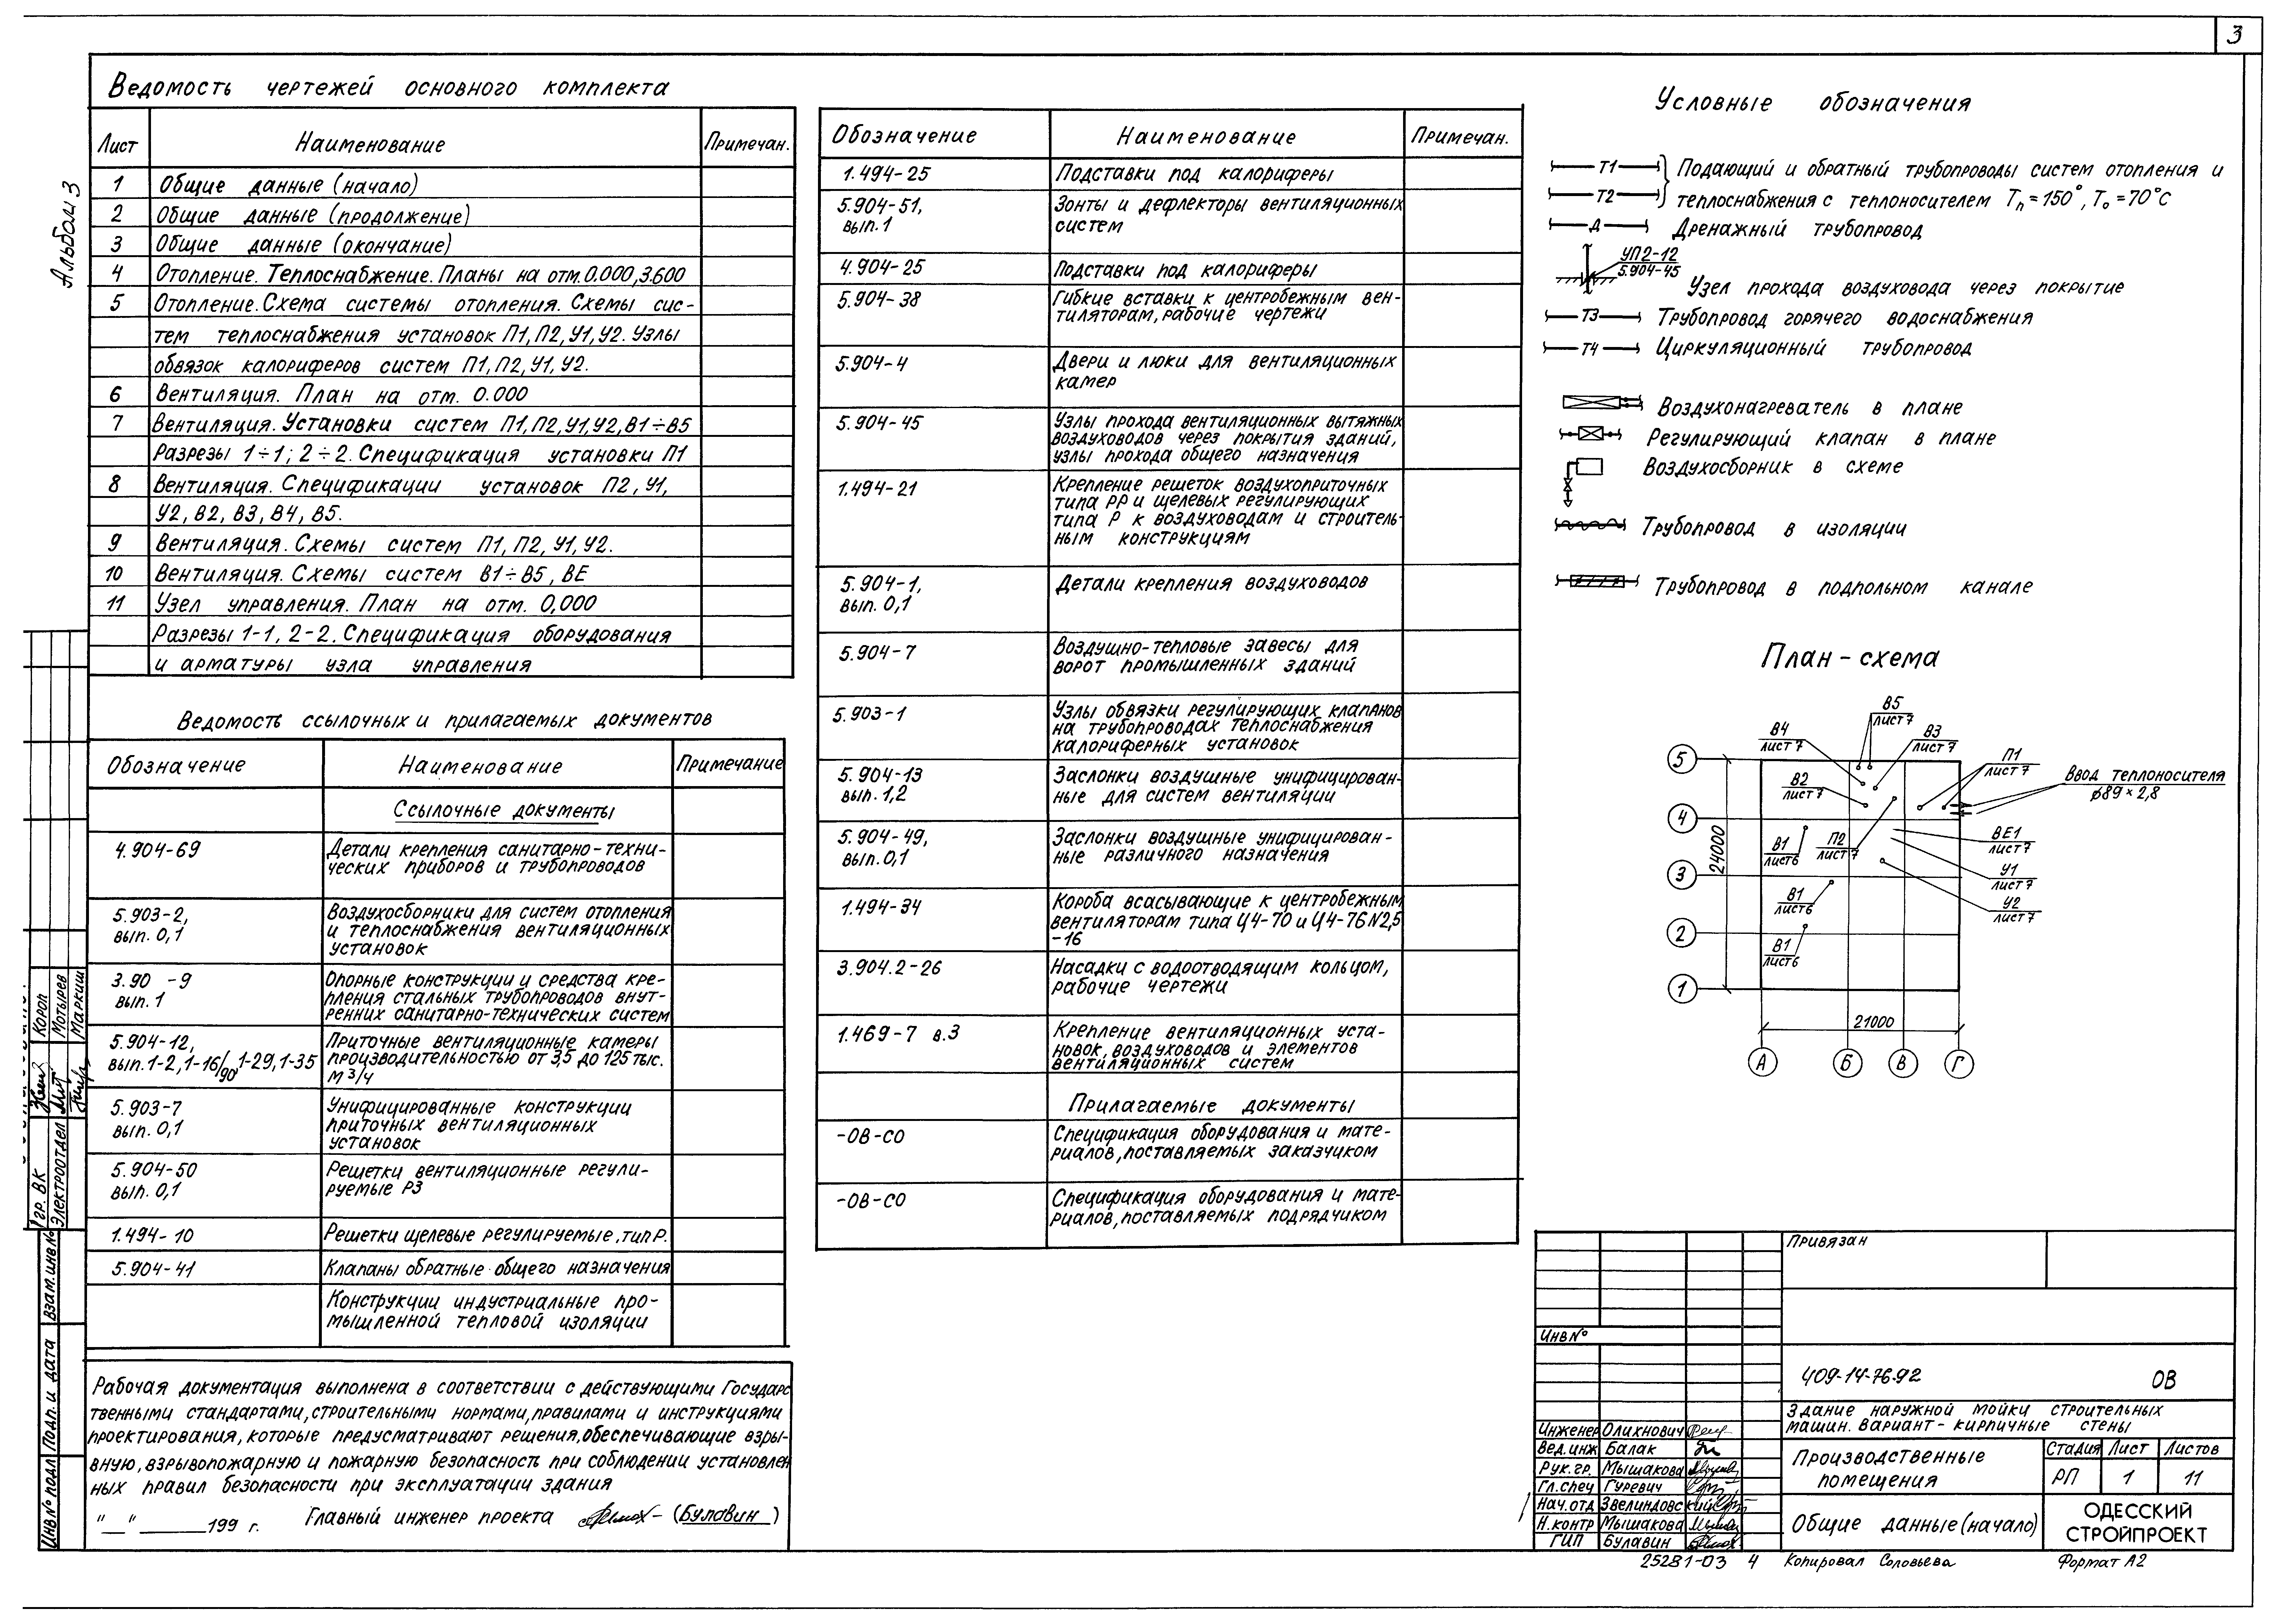 3
Альбом 3
Ведомость чертежей основного комплекта
Лист Наименование Примечан.
1 Общие данные (начало)
2 Общие данные (продолжение)
3 Общие данные (окончание)
4 Отопление. Теплоснабжение. Планы на отм. 0.000, 3.600
5 Отопление. Схема системы отопления. Схемы сис-
тем теплоснабжения установок П1, П2, У1, У2. Узлы
обвязок калориферов систем П1, П2, У1, У2.
6 Вентиляция. План на отм. 0.000
7 Вентиляция. Установки систем П1, П2, У1, У2, В1÷В5
Разрезы 1÷1; 2÷2. Спецификация установки П1
8 Вентиляция. Спецификации установок П2, У1,
У2, В2, В3, В4, В5.
9 Вентиляция. Схемы систем П1, П2, У1, У2.
10 Вентиляция. Схемы систем В1÷В5, ВЕ
11 Узел управления. План на отм. 0,000
Разрезы 1-1, 2-2. Спецификация оборудования
и арматуры узла управления
Ведомость ссылочных и прилагаемых документов
Обозначение Наименование Примечание
Ссылочные документы
4.904-69 Детали крепления санитарно-техни-
ческих приборов и трубопроводов
5.903-2, Воздухосборники для систем отопления
вып. 0,1 и теплоснабжения вентиляционных
установок
3.90 -9 Опорные конструкции и средства кре-
вып. 1 пления стальных трубопроводов внут-
ренних санитарно-технических систем
5.904-12, Приточные вентиляционные камеры
вып. 1-2, 1-16/90, 1-29, 1-35 производительностью от 3,5 до 125 тыс.
м3/ч
5.903-7 Унифицированные конструкции
вып. 0,1 приточных вентиляционных
установок
5.904-50 Решетки вентиляционные регули-
вып. 0,1 руемые РЗ
1.494-10 Решетки щелевые регулируемые, тип Р.
5.904-41 Клапаны обратные общего назначения
Конструкции индустриальные про-
мышленной тепловой изоляции
Рабочая документация выполнена в соответствии с действующими Государс
твенными стандартами, строительными нормами, правилами и инструкциями
проектирования, которые предусматривают решения, обеспечивающие взры-
вную, взрывопожарную и пожарную безопасность при соблюдении установлен
ных правил безопасности при эксплуатации здания
"__" ______199 г. Главный инженер проекта (Булавин)
Обозначение Наименование Примечан.
1.494-25 Подставки под калориферы
5.904-51, Зонты и дефлекторы вентиляционных
вып. 1 систем
4.904-25 Подставки под калориферы
5.904-38 Гибкие вставки к центробежным вен-
тиляторам, рабочие чертежи
5.904-4 Двери и люки для вентиляционных
камер
5.904-45 Узлы прохода вентиляционных вытяжных
воздуховодов через покрытия зданий,
узлы прохода общего назначения
1.494-21 Крепление решеток воздухоприточных
типа РР и щелевых регулирующих
типа Р к воздуховодам и строитель-
ным конструкциям
5.904-1, Детали крепления воздуховодов
вып. 0,1
5.904-7 Воздушно-тепловые завесы для
ворот промышленных зданий
5.903-1 Узлы обвязки регулирующих клапанов
на трубопроводах теплоснабжения
калориферных установок
5.904-13 Заслонки воздушные унифицирован-
вып. 1,2 ные для систем вентиляции
5.904-49, Заслонки воздушные унифицирован-
вып. 0,1 ные различного назначения
1.494-34 Короба всасывающие к центробежным
вентиляторам типа Ц4-70 и Ц4-76 N2,5
-16
3.904.2-26 Насадки с водоотводящим кольцом,
рабочие чертежи
1.469-7 в.3 Крепление вентиляционных уста-
новок, воздуховодов и элементов
вентиляционных систем
Прилагаемые документы
-ОВ-СО Спецификация оборудования и мате-
риалов, поставляемых заказчиком
-ОВ-СО Спецификация оборудования и мате-
риалов, поставляемых подрядчиком
Условные обозначения
Т1 Подающий и обратный трубопроводы систем отопления и
Т2 теплоснабжения с теплоносителем Тп=150°, То=70°С
Д Дренажный трубопровод
УП2-12
5.904-45
Узел прохода воздуховода через покрытие
Т3 Трубопровод горячего водоснабжения
Т4 Циркуляционный трубопровод
Воздухонагреватель в плане
Регулирующий клапан в плане
Воздухосборник в схеме
Трубопровод в изоляции
Трубопровод в подпольном канале
План-схема
В5
лист 7
В4
лист 7
В3
лист 7
П1
лист 7
В2
лист 7
Ввод теплоносителя
ø89×2,8
В1
лист 6
П2
лист 7
ВЕ1
лист 7
У1
лист 7
В1
лист 6
У2
лист 7
В1
лист 6
5
4
3
2
1
24000
21000
А Б В Г
Привязан
Инв №
409-14-76.92 ОВ
Здание наружной мойки строительных
машин. Вариант- кирпичные стены
Инженер Олихнович
Вед. инж Балак
Рук. гр. Мышакова
Гл. спец Гуревич
Нач. отд Звелиндовский
Н. контр Мышакова
ГИП Булавин
Производственные
помещения
Стадия Лист Листов
РП 1 11
Общие данные (начало)
ОДЕССКИЙ
СТРОЙПРОЕКТ
25281-03 4 Копировал Соловьева Формат А2
Короп
Мотырев
Маркиш
гр. ВК
Электроотдел
Взам. инв №
Подп. и дата
Инв № подл